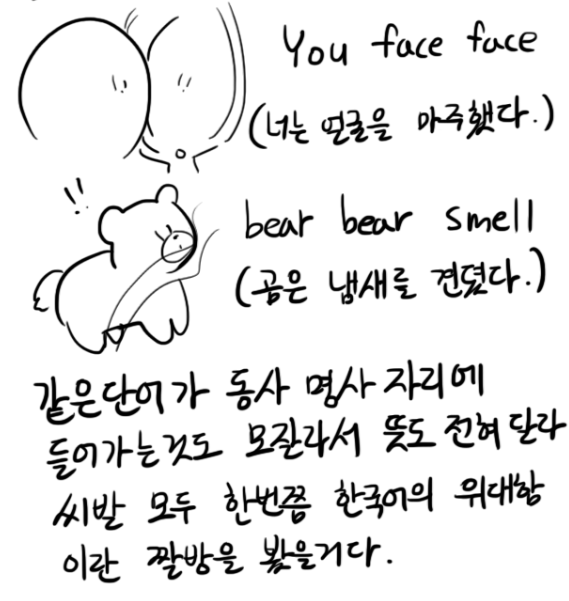 You face face
(너는 얼굴을 마주했다.)
!!
bear bear smell
(곰은 냄새를 견뎠다.)
같은단어가 동사 명사 자리에
들어가는것도 모잘라서 뜻도 전혀 달라
씨발 모두 한번쯤 한국어의 위대함
이란 짤방을 봤을거다.